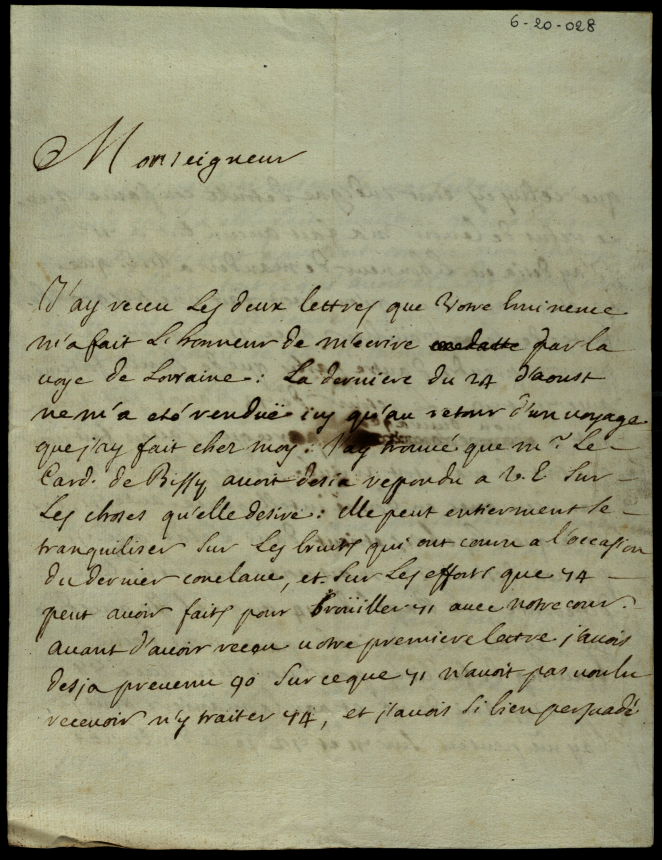 6-20-028
Monseigneur
J'ay receu Les deux lettres que Votre Eminence
m'a fait L'honneur de m'ecrire par la
voye de Lorraine: La derniere du 24 d'aoust
ne m'a eté renduë icy qu'au retour d'un voyage
que j'ay fait chez moy. J'ay trouvé que mr. Le
Card. de Bissy avoit desia repondu a V. E sur
Les choses qu'elle desire: elle peut entierment se
tranquiliser sur Les bruits qui ont couru a l'occasion
du dernier conclave, et sur Les efforts que 44
peut avoir faits pour broüiller 41 avec notre cour.
avant d'avoir recçu votre premiere lettre j'avois
desja prevenu 90 sur ce que 41 n'avoit pas voulu
recevoir n'y traiter 44, et j'avois si bien persuadé